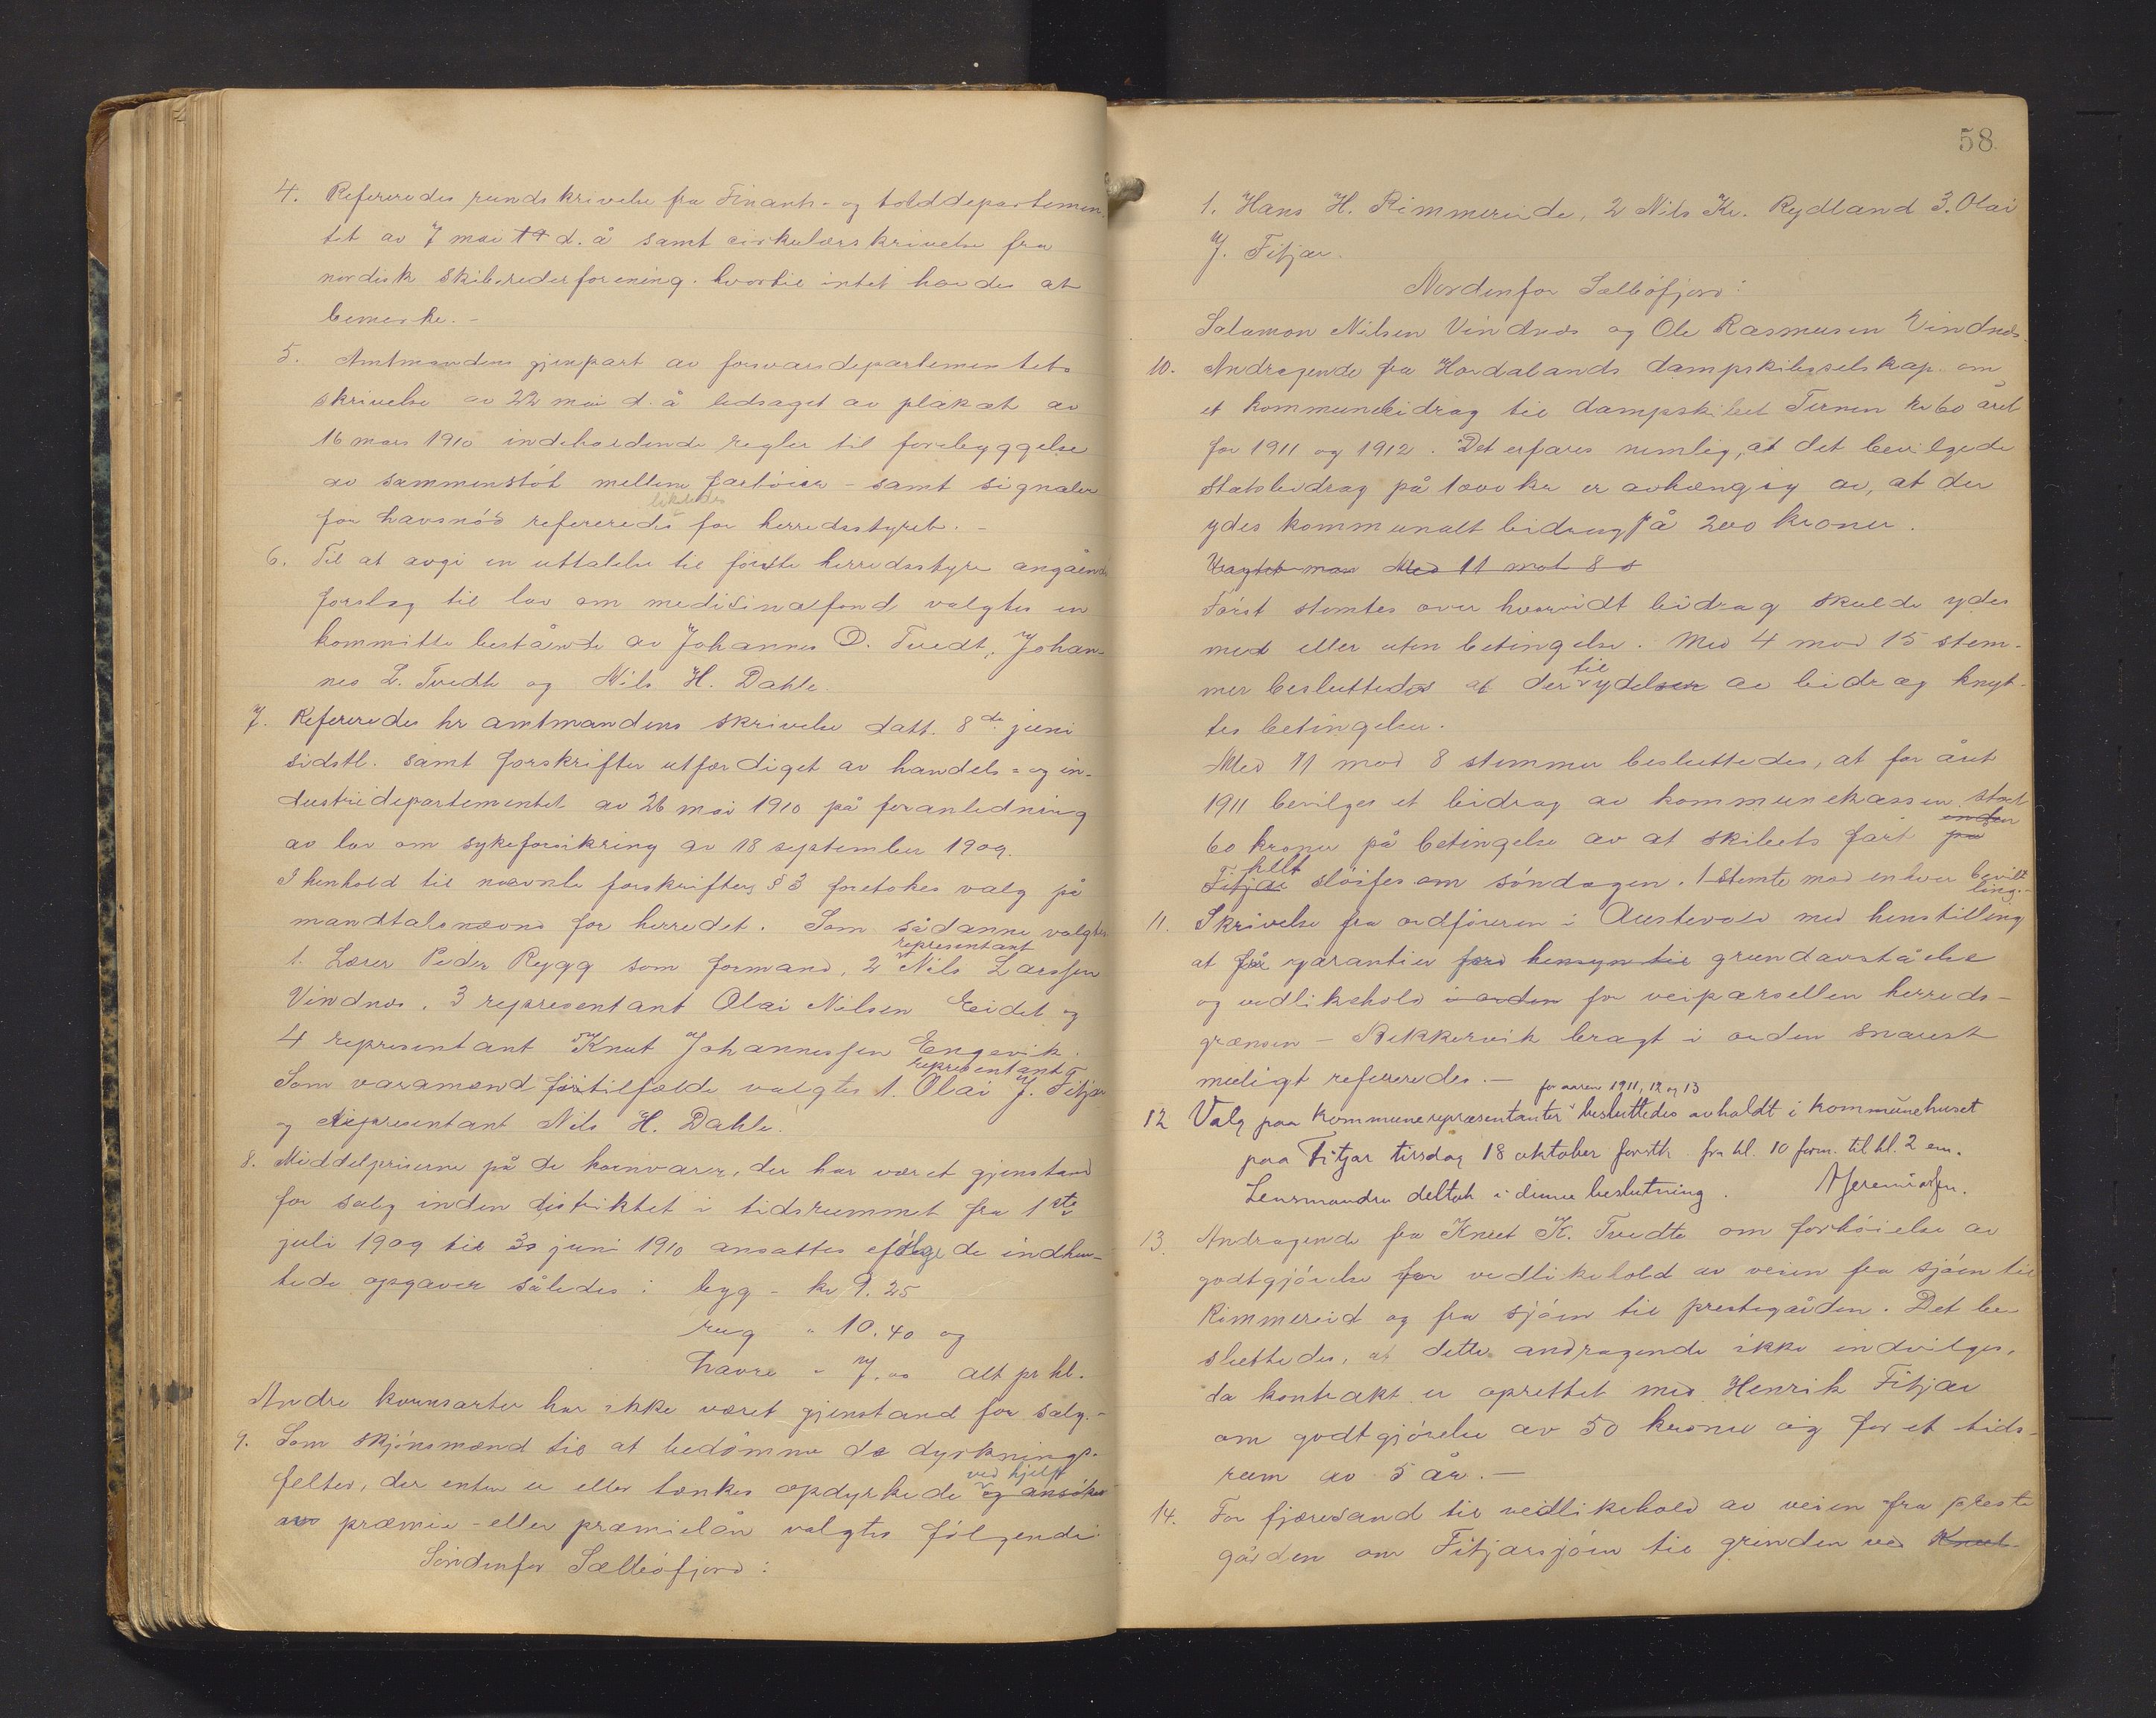 4. Refereredes rundskrivelse fra Finants- og tolddepartemen-
tet av 7 mai d. å samt cirkulærskrivelse fra
nordisk skibsrederforening. hvortil intet havdes at
bemerke. -
5. Amtmandens gjenpart av forsvarsdepartementets
skrivelse av 22 mai d. å ledsaget av plakat av
16 mars 1910 indeholdende regler til forebyggelse
av sammenstöt mellem fartöier - samt signaler
likeledes
for havsnöd refereredes for herredsstyret. -
6. Til at avgi en uttalelse til förste herredsstyre angående
forslag til lov om medisinalfond valgtes en
kommitte bestående av Johannes O. Tvedt, Johan-
nes L. Tvedt og Nils H. Dahle.
7. Refereredes hr amtmandens skrivelse datt. 8de juni
sidstl. samt forskrifter utfærdiget av handels- og in-
dustridepartementet av 26 mai 1910 på foranledning
av lov om sykeforsikring av 18 september 1909.
I henhold til nævnte forskrifters § 3 foretokes valg på
mandtalsnævnd for herredet. Som sådanne valgtes
representant
1. Lærer Peder Rygg som formand, 2 Nils Larssen
Vindnes, 3 representant Olai Nilsen Eidet og
4 representant Knut Johannessen Engevik.
representant
Som varamænd förtilfælde valgtes 1. Olai J. Fitjar
og representant Nils H. Dahle.
8. Middelpriserne på de kornvarer, der har været gjenstand
for salg inden distriktet i tidsrummet fra 1ste
juli 1909 til 30 juni 1910 ansattes efölge de indhen-
tede opgaver således: byg - kr 9.25
rug " 10.40 og
havre " 7.00 alt pr hl.
Andre kornsorter har ikke været gjenstand for salg. -
9. Som skjönsmænd til at bedömme de dyrknings-
ved hjelp
felter, der enten er eller tænkes opdyrkede og ansökes
av præmie - eller præmielån valgtes fölgende:
Söndenfor Sælböfjord:
58
1. Hans H. Rimmereide, 2 Nils Kr. Rydland 3. Olai
J. Fitjar.
Nordenfor Selböfjord:
Salamon Nilsen Vindnes og Ole Rasmusen Vindnes.
10. Andragende fra Hordalands dampskibsselskap om
et kommunebidrag til dampskibet Ternen kr 60 året
for 1911 og 1912. Det erfares nemlig, at det bevilgede
statsbidrag på 1000 kr er avhængig av, at der
ydes kommunalt bidrag på 200 kroner.
Med 11 mot 8 s
Först stemtes over hvorvidt bidrag skulde ydes
med eller uten betingelse. Med 4 mod 15 stem-
til
mer besluttedes at der ydelsen av bidrag knyt-
tes betingelser.
Med 11 mod 8 stemmer besluttedes, at for året
1911 bevilges et bidrag av kommunekassen stort
60 kroner på betingelse av at skibets fart på
helt
Fitjar slöifes om söndagen. 1 stemte mod enhver bevilt-
ling. -
11. Skrivelse fra ordföreren i Austevold med henstilling
at få garantier med hensyn til grundavståelse
og vedlikehold i orden for veiparsellen herreds-
grænsen - Bekkervik bragt i orden snarest
muligt refereredes. -
for aarene 1911, 12 og 13
12 Valg paa kommunerepræsentanter besluttedes avholdt i kommunehuset
paa Fitjar tirsdag 18 oktober førstk. fra kl. 10 form. til kl. 2 em.
Lensmanden deltok i denne beslutning.
13. Andragende fra Knut K. Tvedte om forhöielse av
godtgjörelse for vedlikehold av veien fra sjöen til
Rimmereid og fra sjöen til prestegården. Det be-
sluttedes, at dette andragende ikke indvilges,
da kontrakt er oprettet med Henrik Fitjar
om godtgjörelse av 50 kroner og for et tids-
rum av 5 år. -
14. For fjæresand til vedlikehold av veien fra preste
gården om Fitjarsjöen til grinden ved Knut